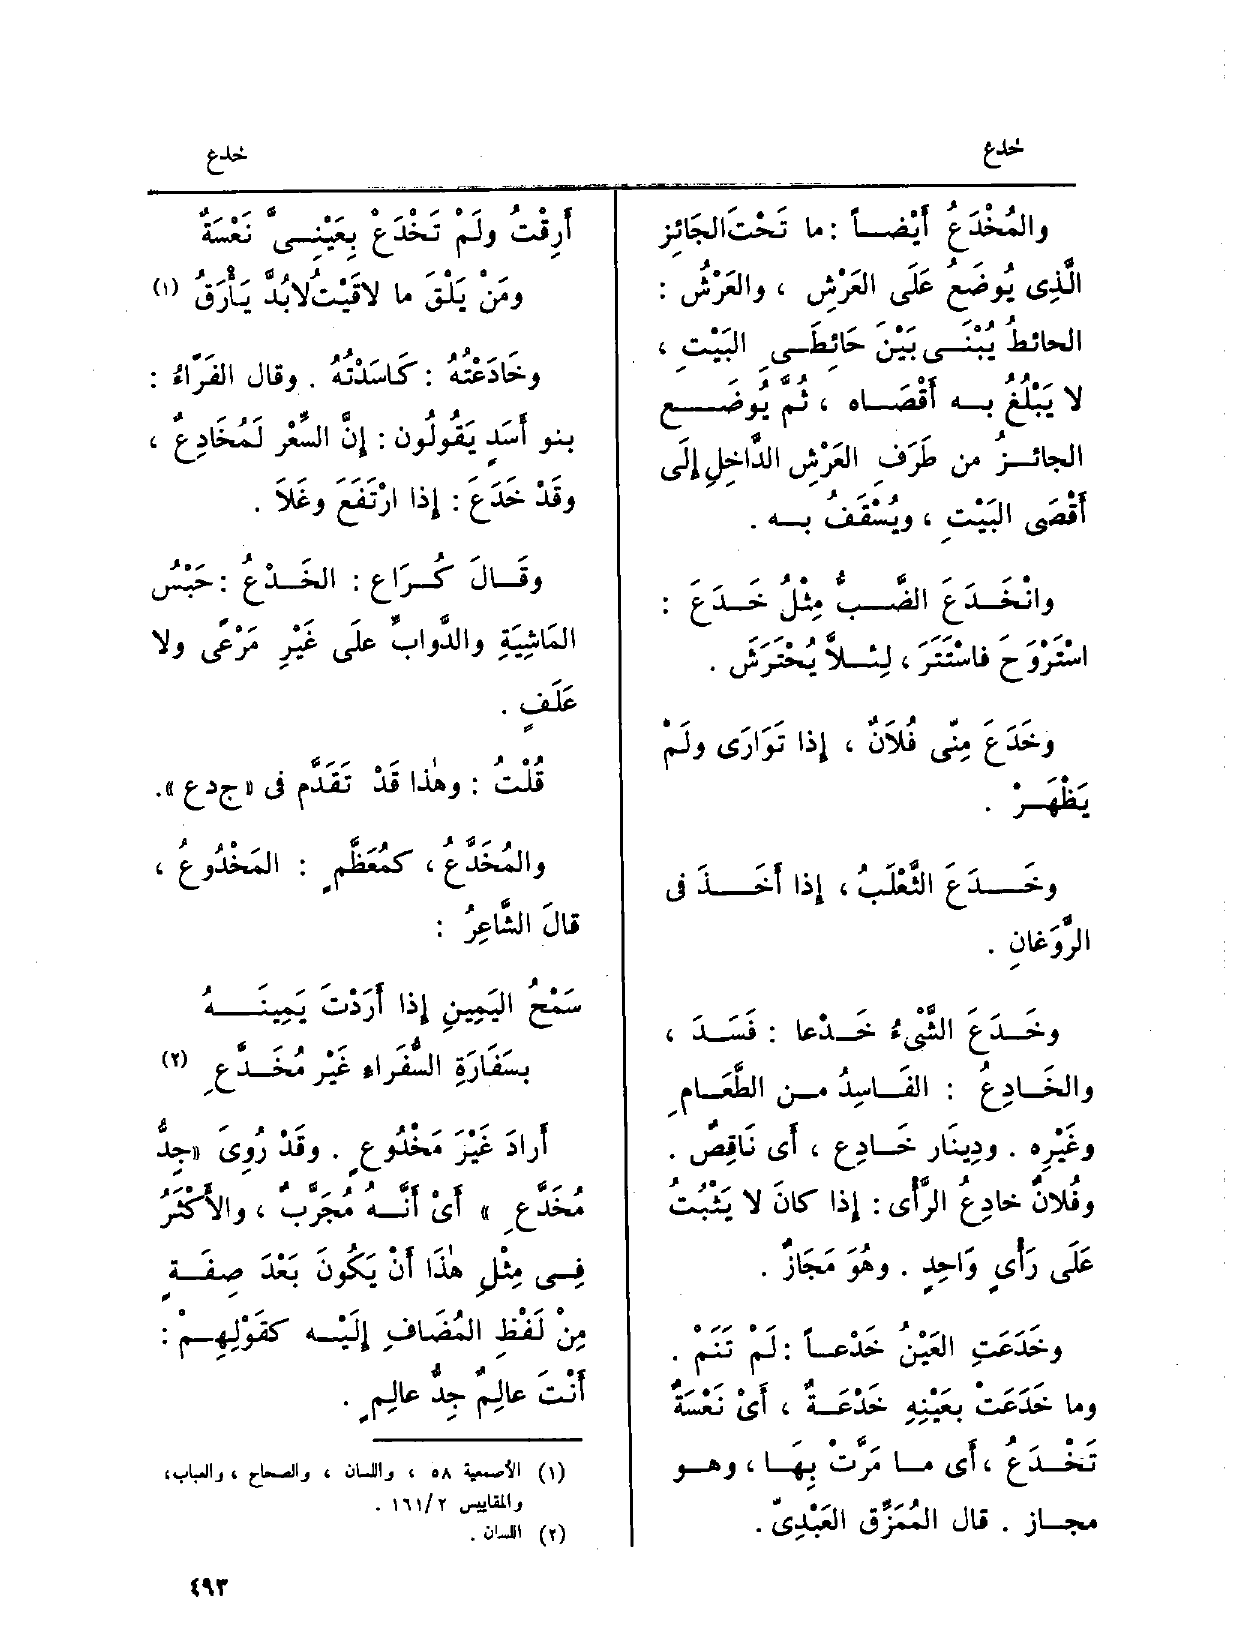 خدع
خدع
والمُخْدَعُ أَيْضاً : ما تَحْتَ الجَائِزِ
الَّذِى يُوضَعُ عَلَى العَرْشِ ، والعَرْشُ :
الحائطُ يُبْنَى بَيْنَ حَائِطَىِ البَيْتِ ،
لا يَبْلُغُ به أَقْصَاه ، ثُمَّ يُوضَع
الجائزُ من طَرَفِ العَرْشِ الدَّاخِلِ إِلَى
أَقْصَى البَيْتِ ، ويُسْقَفُ به .
وانْخَدَعَ الضَّبُّ مِثْلُ خَدَعَ :
اسْتَرْوَحَ فاسْتَتَرَ ، لِئلاَّ يُحْتَرَشَ .
وخَدَعَ مِنِّى فُلاَنٌ ، إِذا تَوَارَى ولَمْ
يَظْهَرْ .
وخَدَعَ الثَّعْلَبُ ، إِذا أَخَذَ فى
الرَّوَغانِ .
وخَدَعَ الشَّىْءُ خَدعا : فَسَدَ ،
والخَادِعُ : الفَاسِدُ من الطَّعَامِ
وغَيْرِه . ودِينَار خَادِع ، أَى نَاقِصٌ .
وفُلانٌ خادِعُ الرَّأْى : إِذا كانَ لا يَثْبُتُ
عَلَى رَأْىٍ وَاحِدٍ . وهُوَ مَجَازٌ .
وخَدَعَتِ العَيْنُ خَدْعاً : لَمْ تَنَمْ .
وما خَدَعَتْ بِعَيْنِهِ خَدْعَةٌ ، أَىْ نَعْسَةٌ
تَخْدَعُ ، أَى ما مَرَّتْ بِهَا ، وهو
مجاز . قال المُمَزَّق العَبْدِىّ .
أَرِقْتُ ولَمْ تَخْدَعْ بِعَيْنِىَّ نَعْسَةٌ
ومَنْ يَلْقَ ما لاقَيْتُ لابُدَّ يَأْرَقُ (١)
وخَادَعْتُهُ : كَاسَدْتُهُ . وقال الفَرّاءُ :
بنو أَسَدٍ يَقُولُون : إِنَّ السِّعْرَ لَمُخَادِعٌ ،
وقَدْ خَدَعَ : إِذا ارْتَفَعَ وغَلاَ .
وقَالَ كُرَاع : الخَدْعُ : حَبْسُ
المَاشِيَةِ والدَّوابِّ على غَيْرِ مَرْعًى ولا
عَلَفٍ .
قُلْتُ : وهٰذا قَدْ تَقَدَّم فى «ج د ع ».
والمُخَدَّعُ ، كمُعَظَّمٍ : المَخْدُوعُ ،
قالَ الشَّاعِرُ :
سَمْحُ اليَمِينِ إِذا أَرَدْتَ يَمِينَهُ
بسَفَارَةِ السُّفَراءِ غَيْر مُخَدَّعِ (٢)
أَرادَ غَيْرَ مَخْدُوعٍ . وقَدْ رُوِىَ «جِدُّ
مُخَدَّعِ » أَىْ أَنَّهُ مُجَرَّبٌ ، والأَكْثَرُ
فِى مِثْلِ هٰذَا أَنْ يَكُونَ بَعْدَ صِفَةٍ
مِنْ لَفْظِ المُضَافِ إِلَيْه كقَوْلِهِمْ :
أَنْتَ عالِمٌ جِدُّ عالِمٍ .
(١) الأصمعية ٥٨ ، واللسان ، والصحاح ، والعباب،
والمقاييس ١٦١/٢ .
(٢) اللسان .
٤٩٣